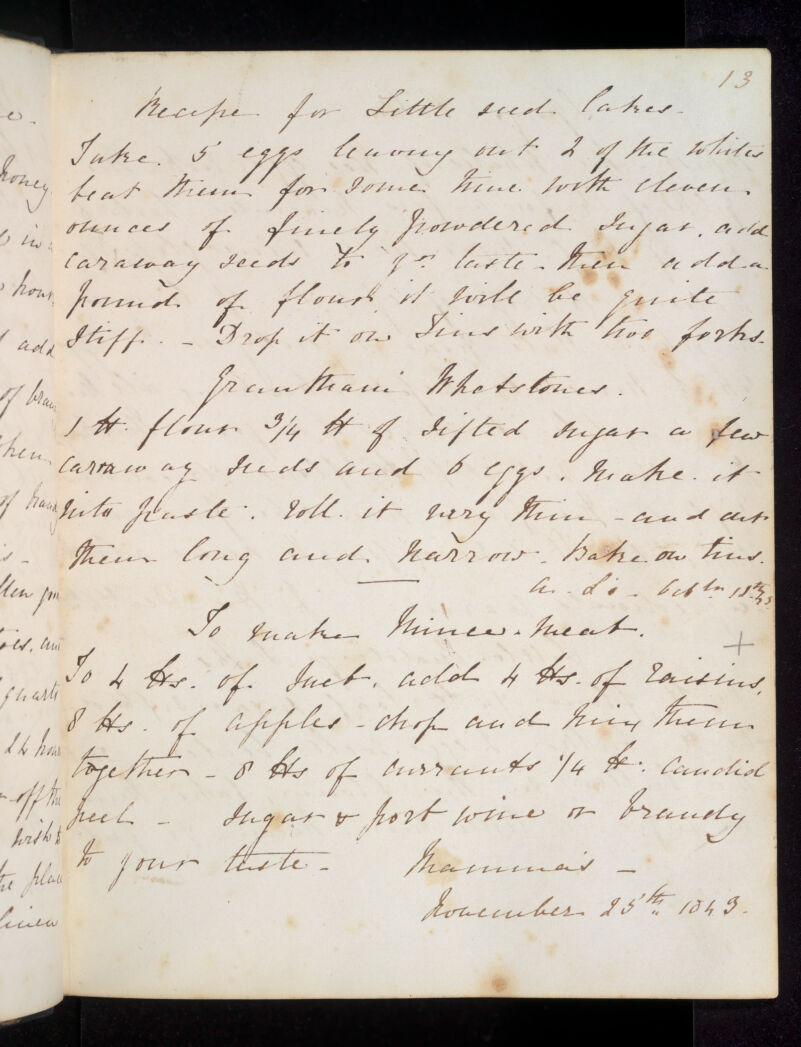 13
Recipe for Little seed Cakes.
Take 5 eggs leaving out 2 of the whites
beat them for some time with eleven
ounces of finely powdered sugar, add
caraway seeds to yr taste - then add a
pound of flour it will be quite
stiff. - Drop it on Tins with two forks.
Grantham Whetstones.
1 lb flour 3/4 lb of sifted sugar a few
carraway seeds and 6 eggs. Make it
into paste. roll it very thin - and cut
them long and narrow. Bake on tins.
To make Mince-Meat.
+
To 4 lbs. of Suet, add 4 lbs. of raisins,
8 lbs. of apples - chop and mix them
together - 8 lbs of currants 1/4 lb. candid
peel - Sugar & port wine or brandy
to your taste - Mamma's -
November 25th 1843.
honey
in
hour
add
of
then
of
quart
24 hour
off the
wish
the place
linen